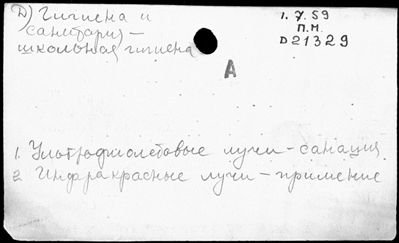 Д) Гигиена и
санитария —
школьная гигиена
1. 7. 59
П.М.
D 21329
А
1. Ультрафиолетовые лучи - санация
2. Инфракрасные лучи - применение